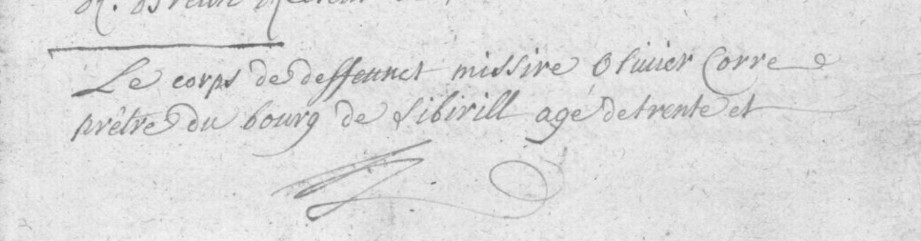 Le corps de deffeunct missire Olivier Corre
prêtre du bourg de Sibirill agé de trente et